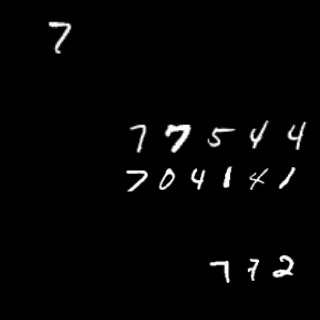 7
77544
704141
772